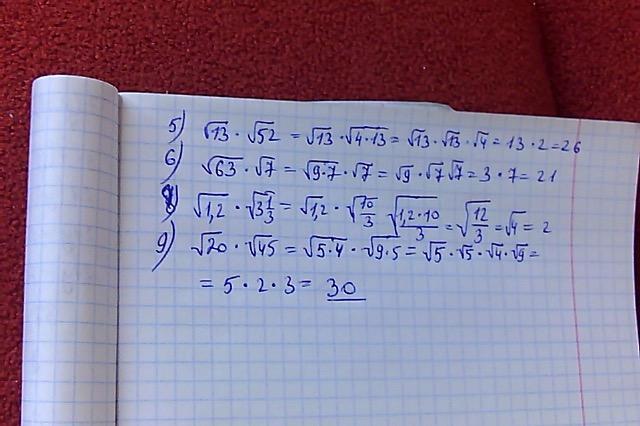 5) √13 · √52 = √13 · √4·13 = √13 · √13 · √4 = 13 · 2 = 26
6) √63 · √7 = √9·7 · √7 = √9 · √7 √7 = 3 · 7 = 21
8) √1,2 · √3 1/3 = √1,2 · √10/3 √1,2·10/3 = √12/3 = √4 = 2
9) √20 · √45 = √5·4 · √9·5 = √5 · √5 · √4 · √9 =
= 5 · 2 · 3 = 30